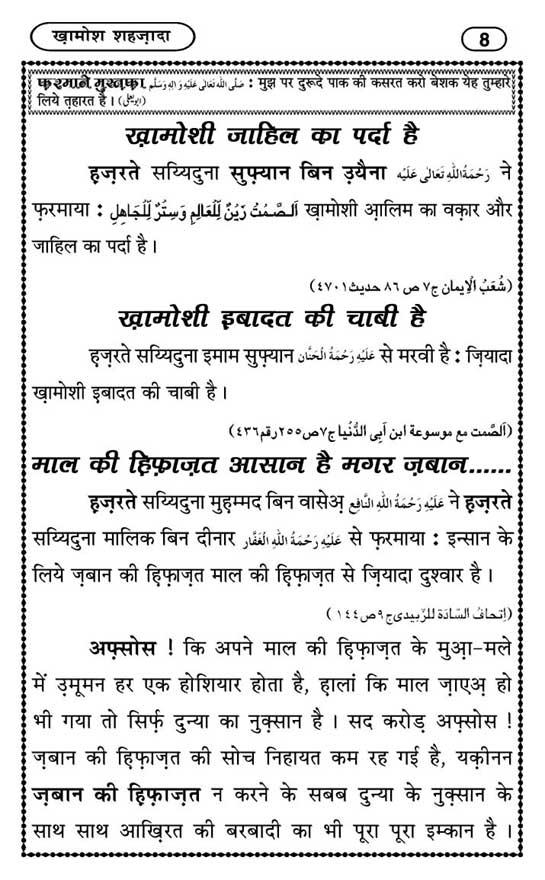 ख़ामोश शहज़ादा
8
फ़रमाने मुस्तफ़ा صَلَّى اللّٰهُ تَعَالٰى عَلَيْهِ وَاٰلِهٖ وَسَلَّم : मुझ पर दुरूदे पाक की कसरत करो बेशक येह तुम्हारे
लिये त़हारत है । (ابو یعلی)
ख़ामोशी जाहिल का पर्दा है
ह़ज़रते सय्यिदुना सुफ़्यान बिन उ़यैना رَحْمَةُ اللّٰهِ تَعَالٰى عَلَيْه ने
फ़रमाया : اَلصَّمْتُ زَيْنٌ لِّلْعَالِمِ وَسِتْرٌ لِّلْجَاهِلِ ख़ामोशी आ़लिम का वक़ार और
जाहिल का पर्दा है ।
(شُعَبُ الْاِيمان ج٧ ص ٨٦ حديث ٤٧٠١)
ख़ामोशी इबादत की चाबी है
ह़ज़रते सय्यिदुना इमाम सुफ़्यान عَلَيْهِ رَحْمَةُ الْحَنَّان से मरवी है : ज़ियादा
ख़ामोशी इबादत की चाबी है ।
(اَلصَّمت مع موسوعة ابن اَبِى الدُّنْيا ج٧ ص٢٥٥ رقم ٤٣٦)
माल की ह़िफ़ाज़त आसान है मगर ज़बान......
ह़ज़रते सय्यिदुना मुह़म्मद बिन वासेअ़ عَلَيْهِ رَحْمَةُ اللّٰهِ النَّافِع ने ह़ज़रते
सय्यिदुना मालिक बिन दीनार عَلَيْهِ رَحْمَةُ اللّٰهِ الْغَفَّار से फ़रमाया : इन्सान के
लिये ज़बान की ह़िफ़ाज़त माल की ह़िफ़ाज़त से ज़ियादा दुश्वार है ।
(اِتحافُ السّادَة للزَّبيدى ج ٩ ص ١٤٤)
अफ़्सोस ! कि अपने माल की ह़िफ़ाज़त के मुआ़-मले
में उ़मूमन हर एक होशियार होता है, ह़ालां कि माल ज़ाएअ़ हो
भी गया तो सिर्फ़ दुन्या का नुक़्सान है । सद करोड़ अफ़्सोस !
ज़बान की ह़िफ़ाज़त की सोच निहायत कम रह गई है, यक़ीनन
ज़बान की ह़िफ़ाज़त न करने के सबब दुन्या के नुक़्सान के
साथ साथ आख़िरत की बरबादी का भी पूरा पूरा इम्कान है ।